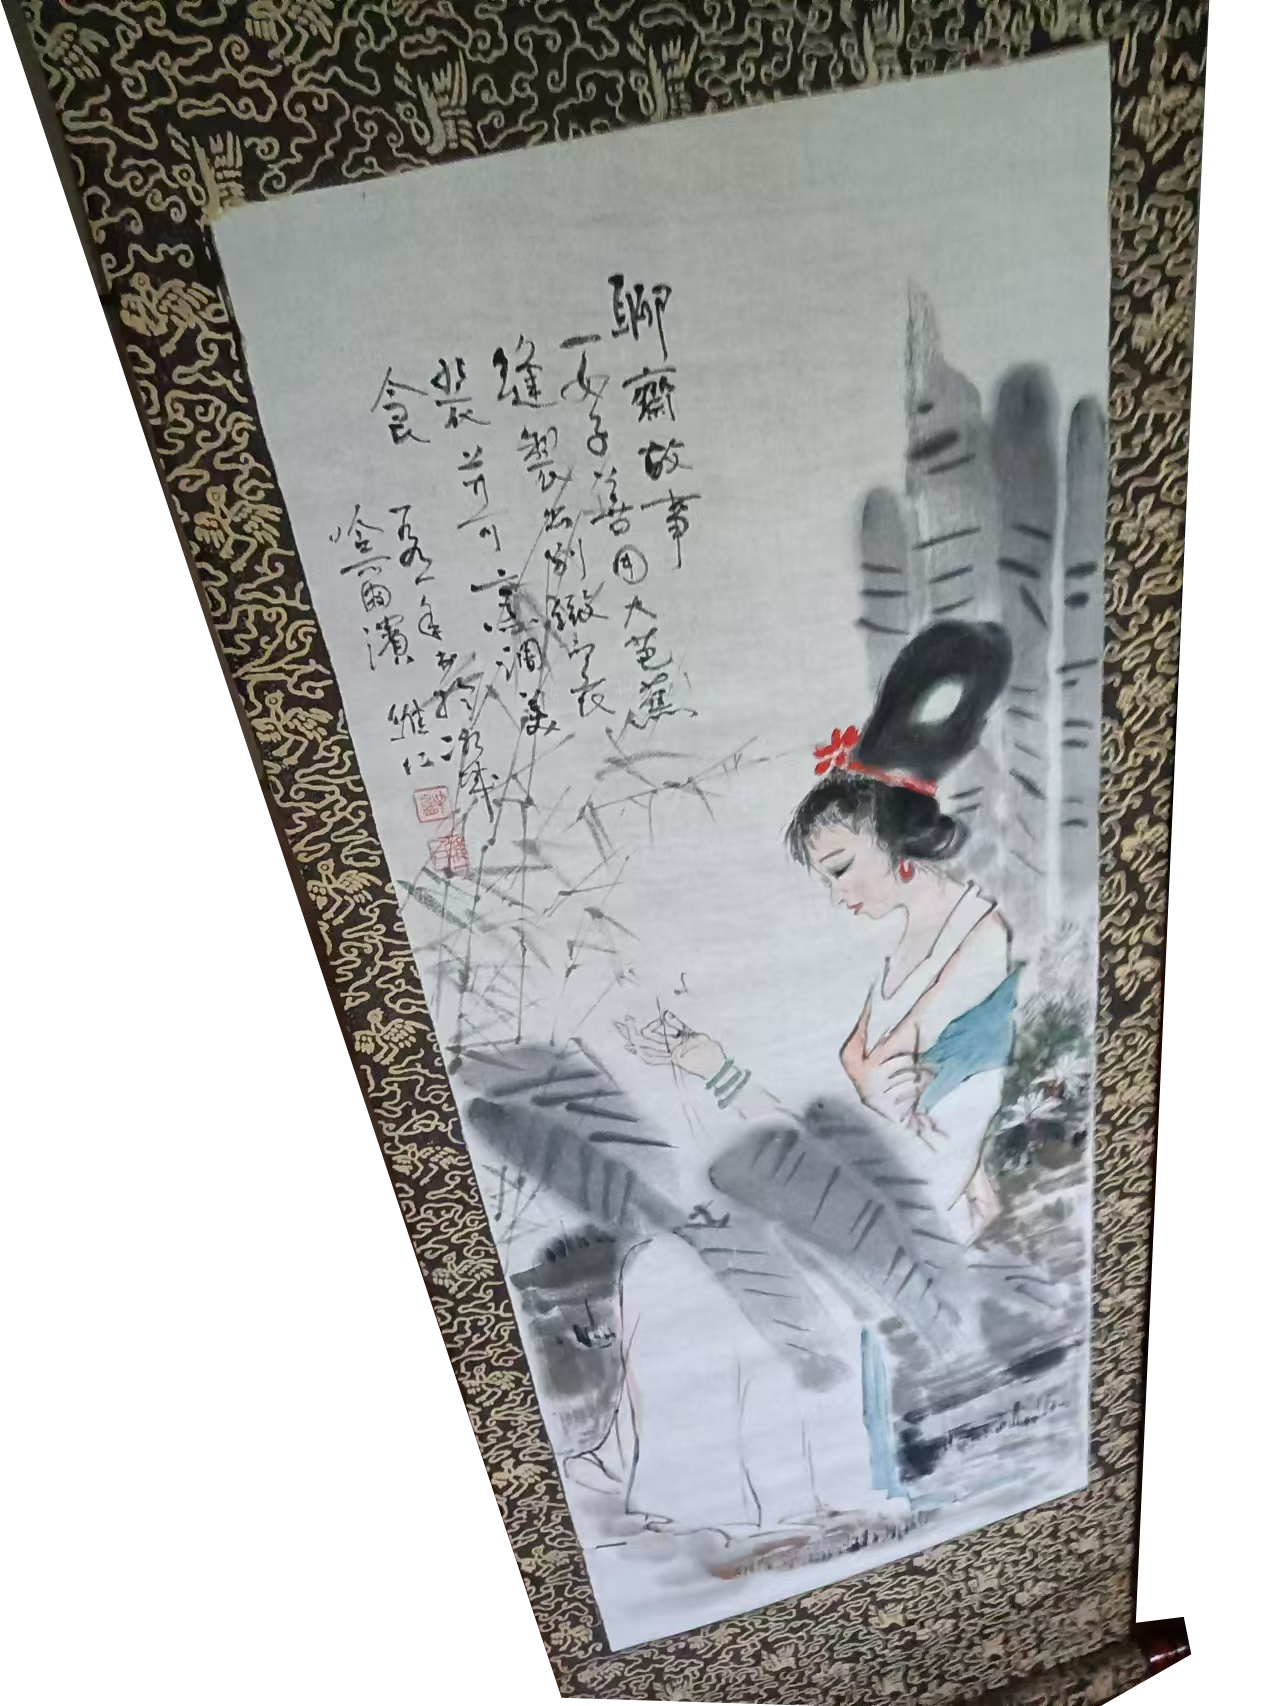 聊齋故事
一女子善用大芭蕉
縫製出別緻的衣
裝并可烹調美
食
一九九一年書於冰城
哈爾濱 維仁